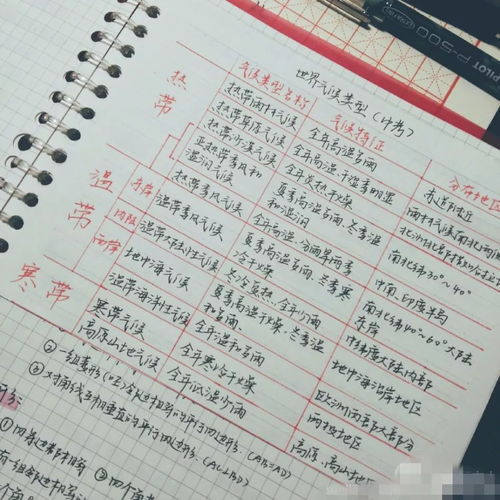 世界气候类型（中考）
气候类型名称 气候特征 分布地区
热带
热带雨林气候 全年高温多雨 赤道附近
热带草原气候 全年高温、干湿季明显 雨林气候南北两侧
热带沙漠气候 全年炎热干燥
亚热带季风和湿润气候 夏季高温多雨、冬季温和湿润 南北纬30°～40°
热带季风气候 全年高温、分雨旱两季 中南、印度半岛
温带
东岸 温带季风气候 夏季高温多雨、冬季寒冷干燥 南北纬40°-60°大陆东岸
内陆 温带大陆性气候 冬冷夏热、全年少雨 中纬度大陆内部
西岸 地中海气候 夏季高温干燥、冬季温和多雨 地中海沿岸地区
温带海洋性气候 全年温和多雨 欧洲西部大部分
寒带
寒带气候 全年寒冷干燥 两极地区
高原山地气候 全年低温少雨 高原、高山地区
② 一组邻边相等的平行四边形 (AB=AD)
③ 对角线互相垂直的平行四边形 (AC⊥BD)
① 四条边都相等
PILOT P-500